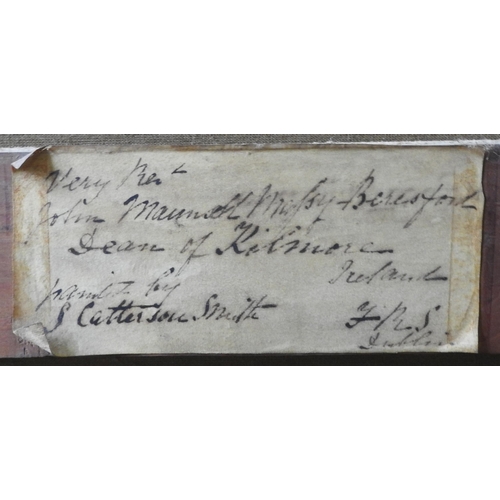 Very Revt
John Maunsell Massy Beresford
Dean of Kilmore
Ireland
painted by
S Catterson Smith F R S
Dublin